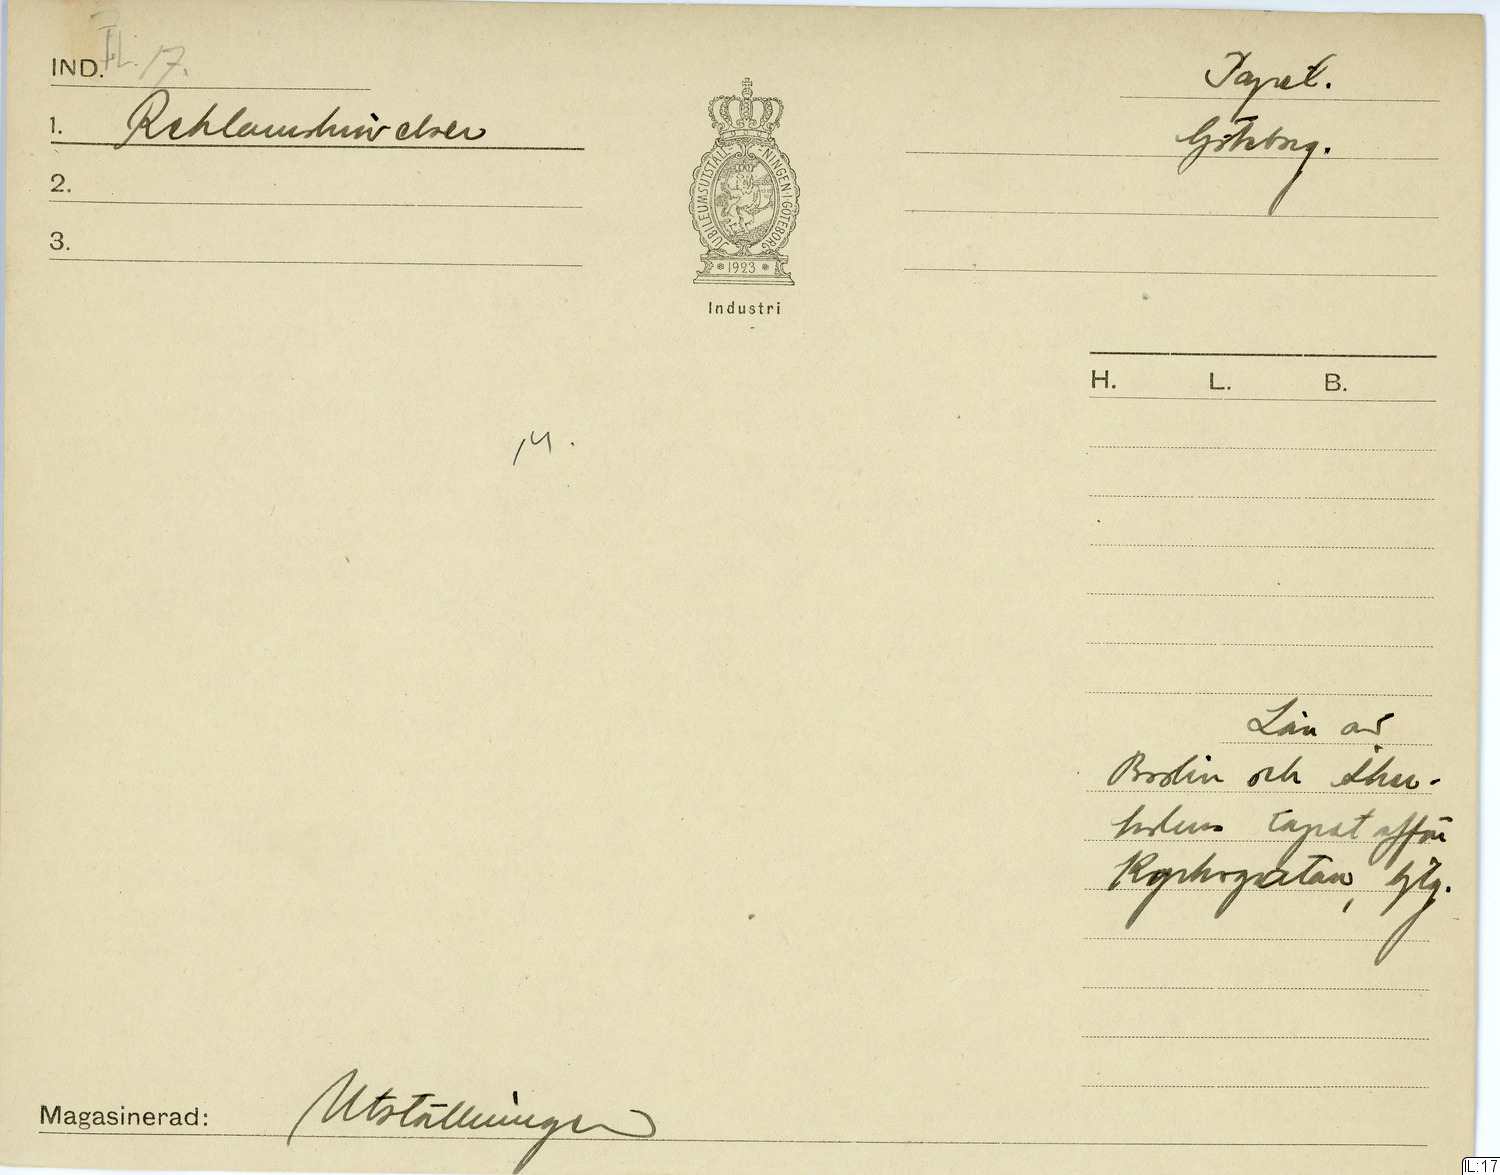 IND. IL. 17.
1. Reklamskrivelser
2.
3.
JUBILEUMSUTSTÄLLNINGEN I GÖTEBORG
1923
Industri
Tapet.
Göteborg.
H. L. B.
M.
Lån av
Brolin och
Tapetaffär
Kyrkogatan, Gbg.
Magasinerad: Utställningen
IL:17